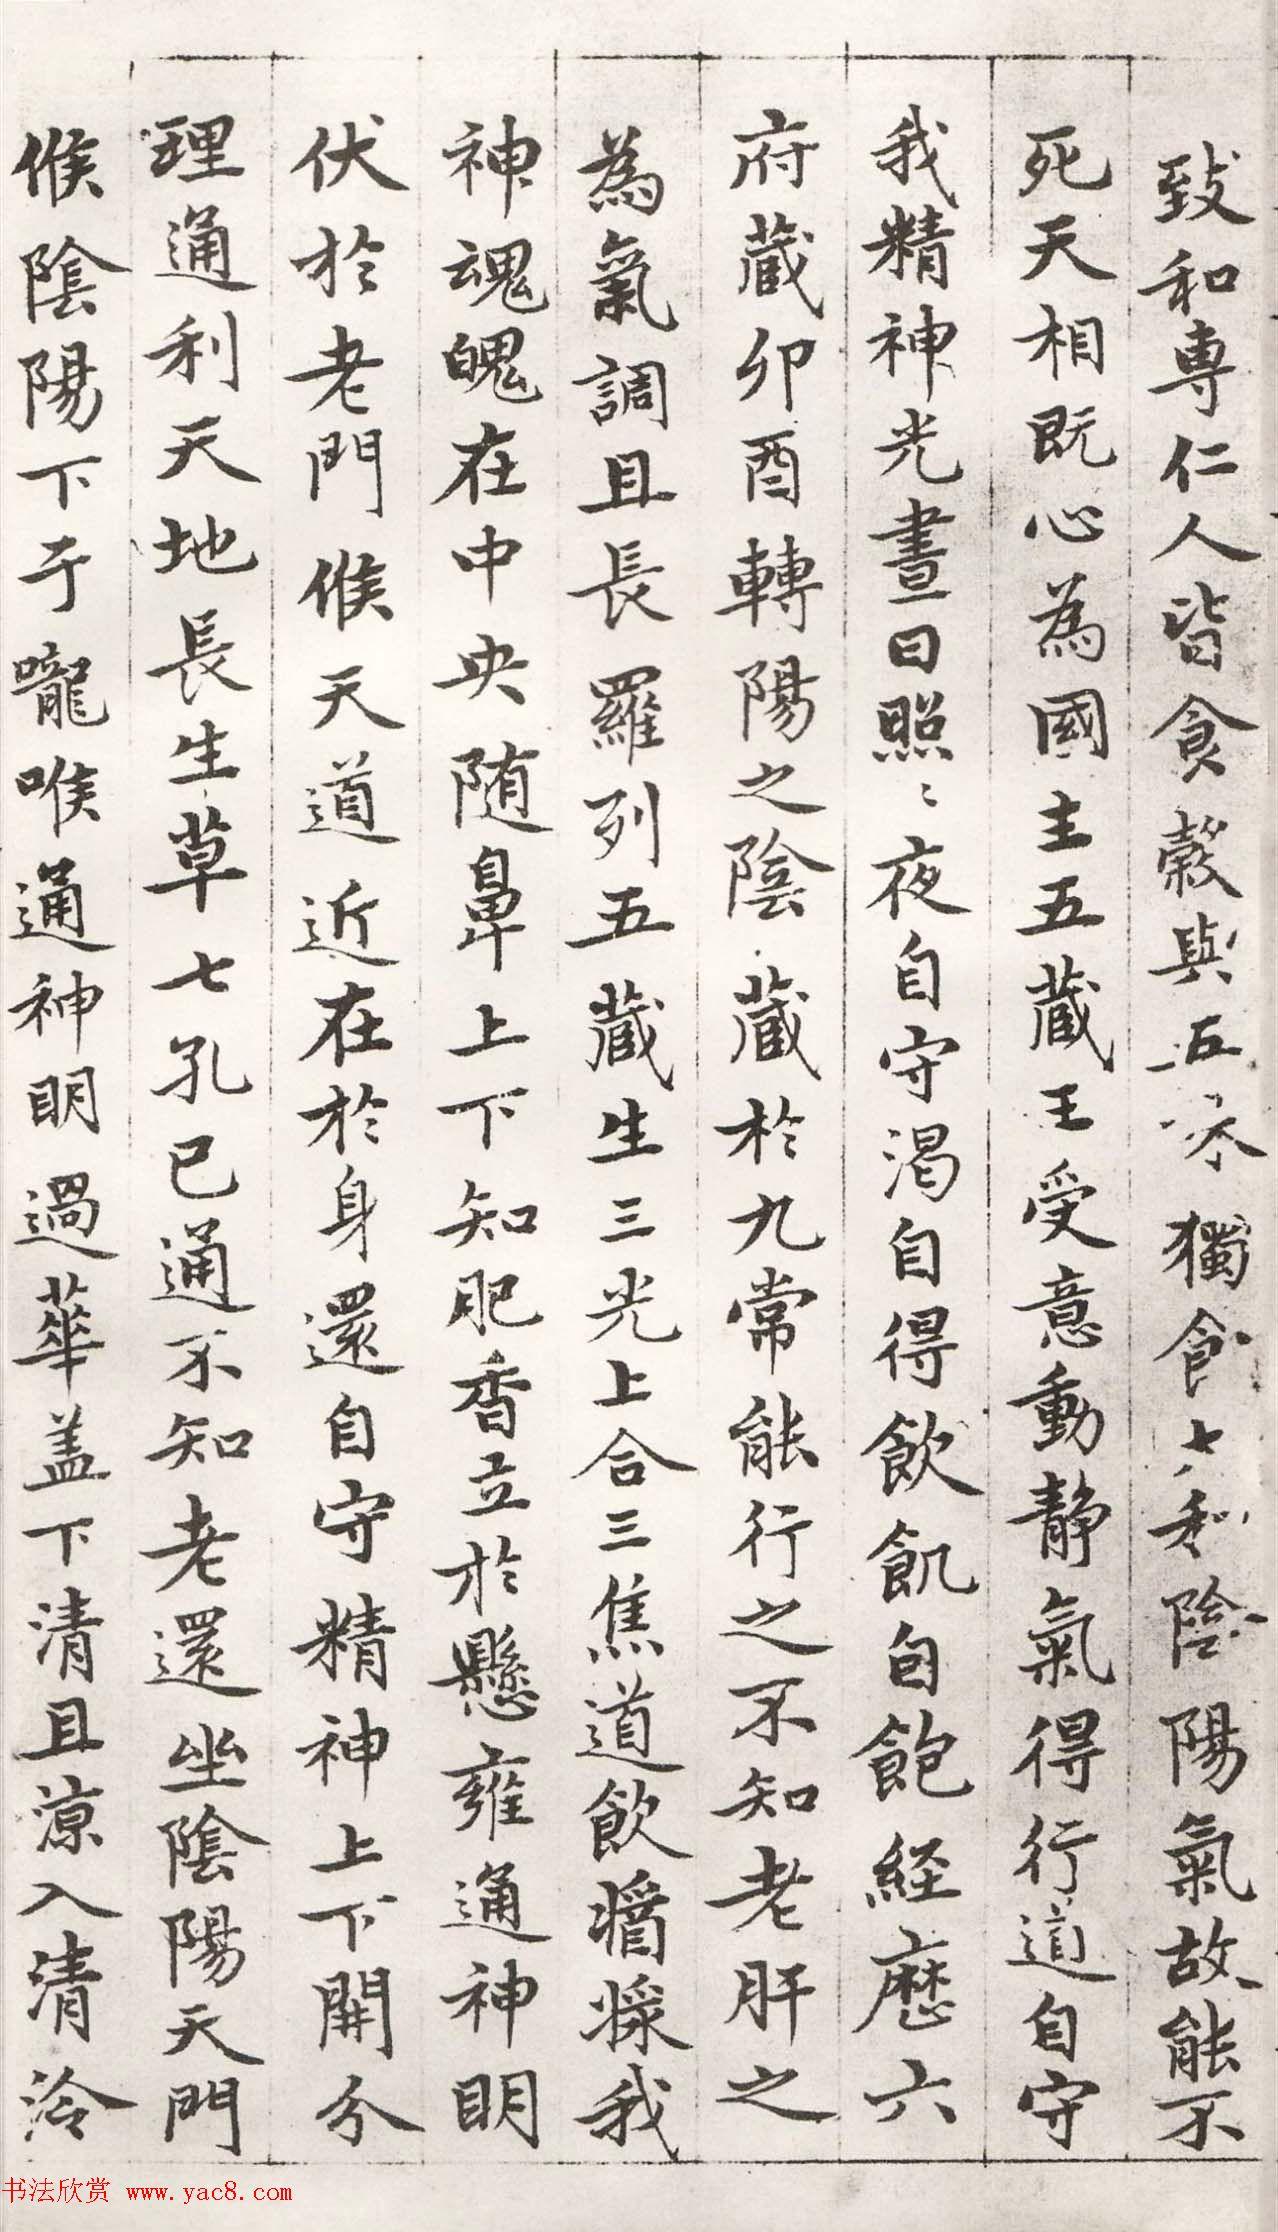 致和專仁人皆食穀與五味獨食七和陰陽氣故能不
死天相既心為國主五藏王受意動靜氣得行道自守
我精神光晝日照〻夜自守渴自得飲飢自飽經歷六
府藏卯酉轉陽之陰藏於九常能行之不知老肝之
為氣調且長羅列五藏生三光上合三焦道飲醬漿我
神魂魄在中央随鼻上下知肥香立於懸雍通神明
伏於老門候天道近在於身還自守精神上下開分
理通利天地長生草七孔已通不知老還坐陰陽天門
候陰陽下于嚨喉通神明過華盖下清且涼入清泠
书法欣赏 www.yac8.com